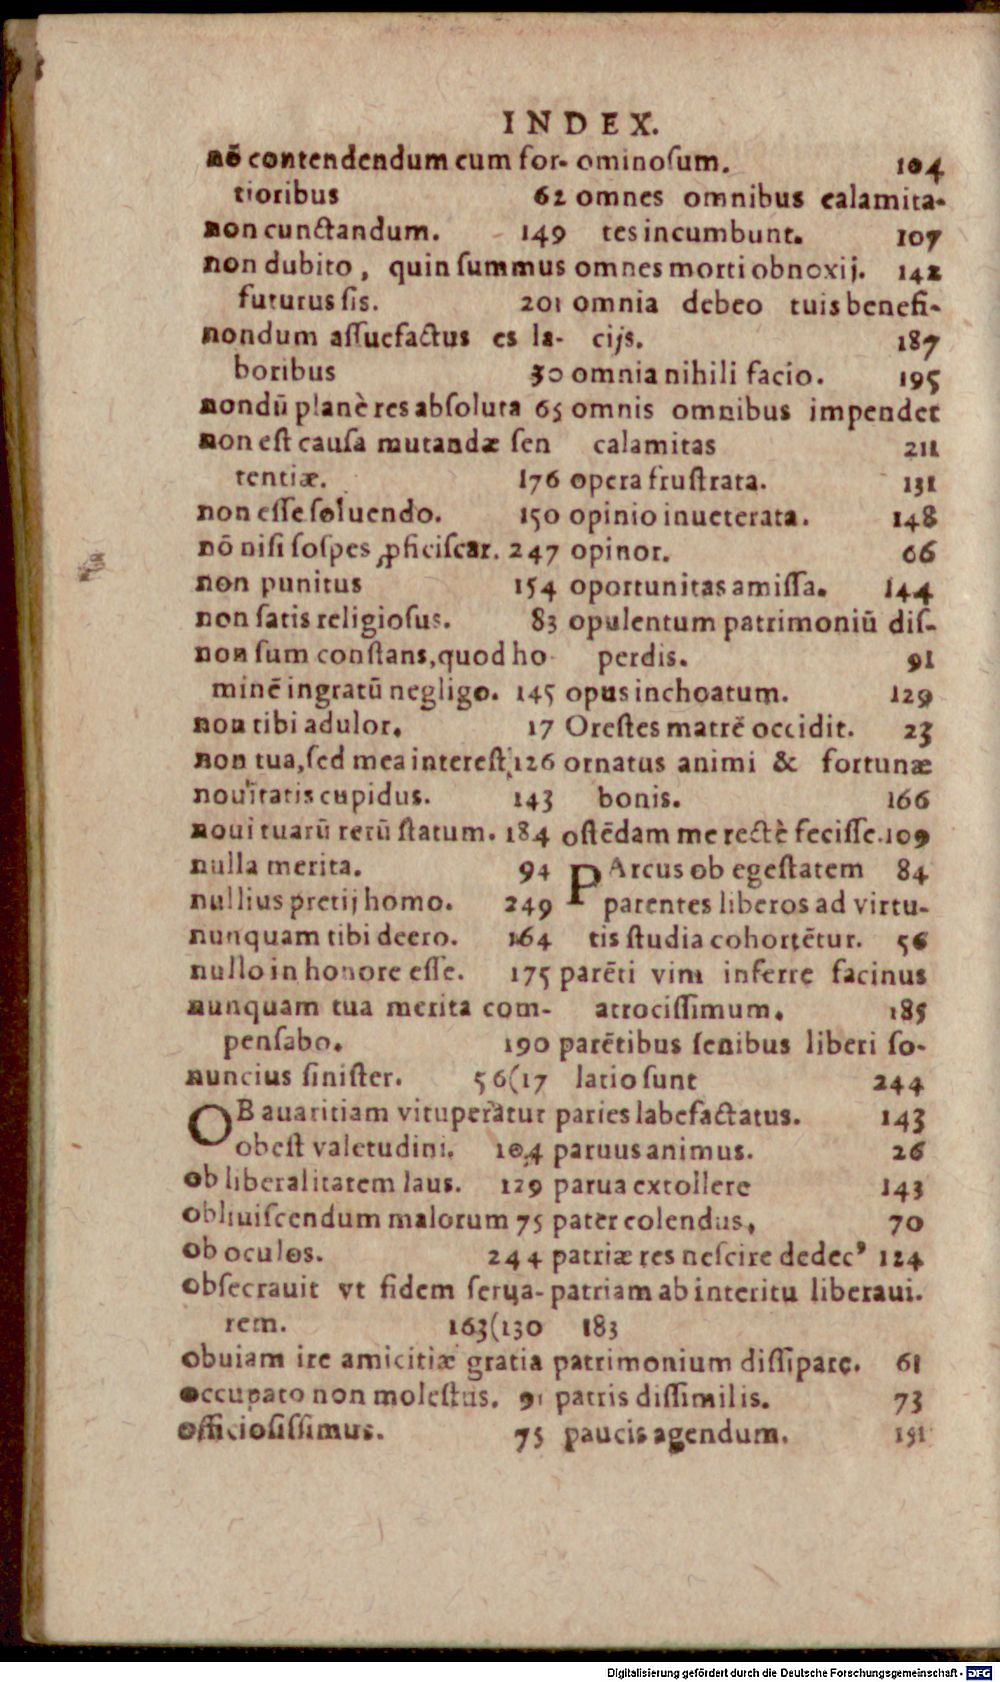 INDEX.
nō contendendum cum for-
tioribus 62
non cunctandum. 149
non dubito, quin summus
futurus sis. 201
nondum assuefactus es la-
boribus 30
nondū planè res absoluta 65
non est causa mutandæ sen
tentiæ. 176
non esse soluendo. 150
nō nisi sospes ꝓficiscar. 247
non punitus 154
non satis religiosus. 83
non sum constans, quod ho
minē ingratū negligo. 145
non tibi adulor. 17
non tua, sed mea interest. 126
nouitatis cupidus. 143
noui tuarū rerū statum. 184
nulla merita. 94
nullius pretij homo. 249
nunquam tibi deero. 164
nullo in honore esse. 175
nunquam tua merita com-
pensabo. 190
nuncius sinister. 56(17
OB auaritiam vituperatur
obest valetudini. 104
ob liberalitatem laus. 129
obliuiscendum malorum 75
ob oculos. 244
obsecrauit vt fidem serua-
rem. 163(130
obuiam ire amicitiæ gratia
occupato non molestus. 91
officiosissimus. 75
ominosum. 104
omnes omnibus calamita-
tes incumbunt. 107
omnes morti obnoxij. 142
omnia debeo tuis benefi-
cijs. 187
omnia nihili facio. 195
omnis omnibus impendet
calamitas 211
opera frustrata. 131
opinio inueterata. 148
opinor. 66
oportunitas amissa. 144
opulentum patrimoniū dis-
perdis. 91
opus inchoatum. 129
Orestes matrē occidit. 23
ornatus animi & fortunæ
bonis. 166
ostēdam me rectè fecisse. 109
PArcus ob egestatem 84
parentes liberos ad virtu-
tis studia cohortētur. 56
parēti vim inferre facinus
atrocissimum. 185
parētibus senibus liberi so-
latio sunt 244
paries labefactatus. 143
paruus animus. 26
parua extollere 143
pater colendus, 70
patriæ res nescire dedecꝰ 124
patriam ab interitu liberaui.
183
patrimonium dissipare. 61
patris dissimilis. 73
paucis agendum. 151
Digitalisierung gefördert durch die Deutsche Forschungsgemeinschaft - DFG